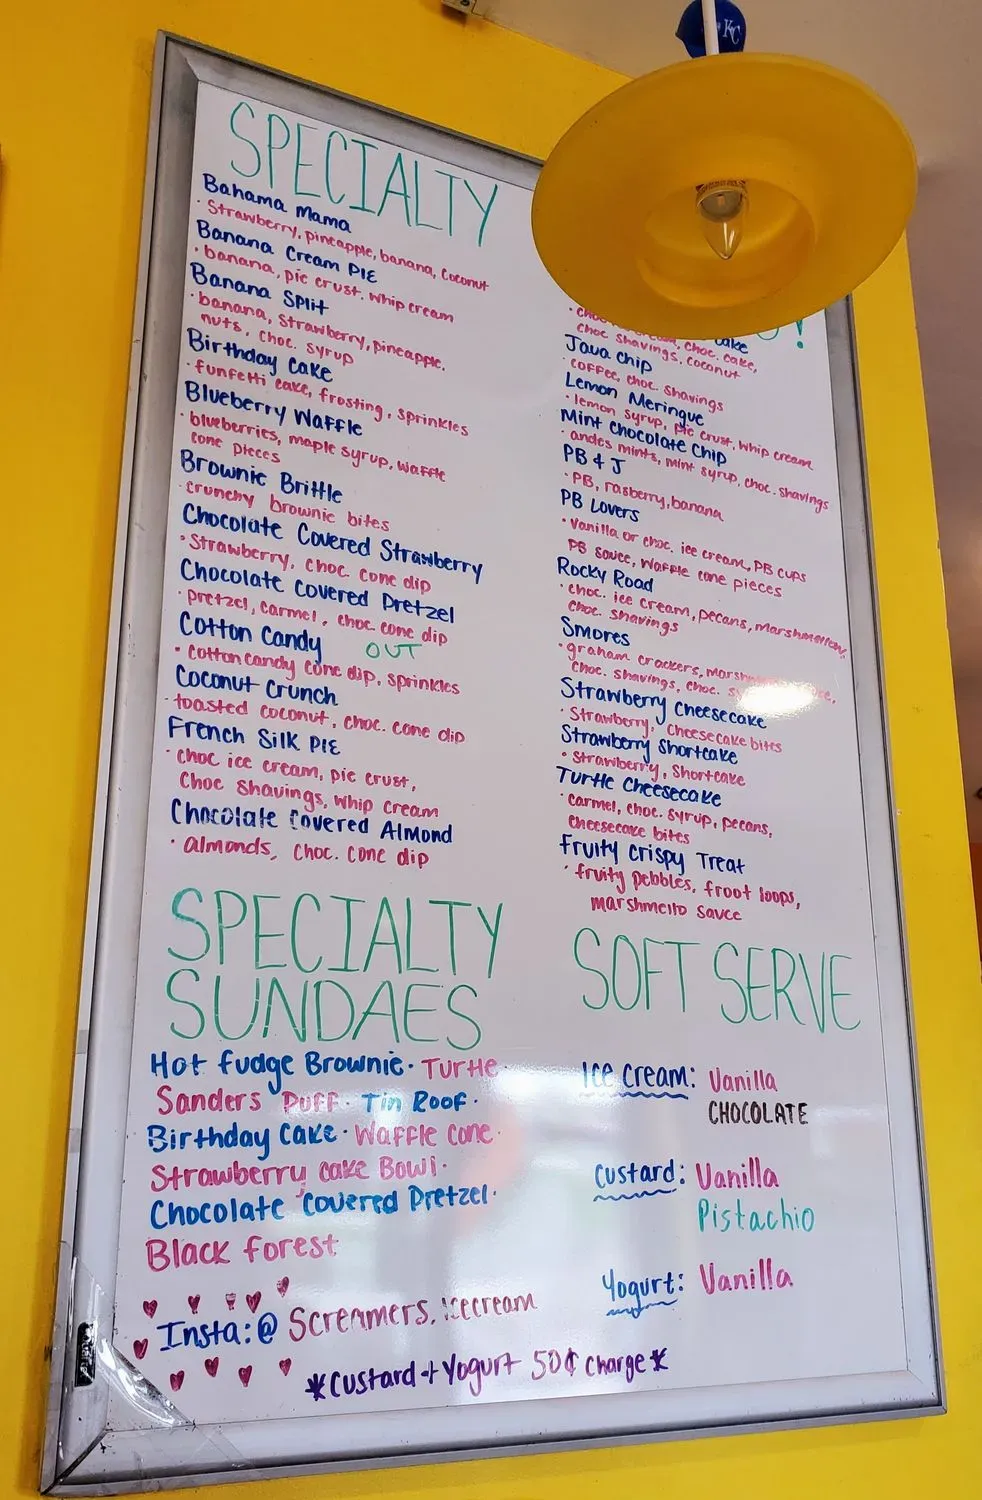 KC
SPECIALTY
Bahama Mama
· Strawberry, pineapple, banana, Coconut
Banana Cream PIE
· banana, pie crust. whip cream
Banana Split
· banana, Strawberry, pineapple,
nuts, choc. syrup
Birthday Cake
· funfetti cake, frosting, sprinkles
Blueberry Waffle
· blueberries, maple syrup, waffle
cone pieces
Brownie Brittle
· crunchy brownie bites
Chocolate Covered Strawberry
· Strawberry, choc. cone dip
Chocolate Covered Pretzel
· pretzel, carmel, choc. cone dip
Cotton Candy OUT
· cotton candy cone dip, sprinkles
Coconut Crunch
· toasted coconut, choc. cone dip
French Silk PIE
· choc ice cream, pie crust,
Choc Shavings, whip cream
Chocolate Covered Almond
· almonds, choc. cone dip
!
cake
choc. cake,
choc shavings. coconut
Java Chip
· coffee, choc. shavings
Lemon Meringue
· lemon syrup, pie crust, whip cream
Mint Chocolate Chip
· andes mints, mint syrup, choc. shavings
PB & J
· PB, rasberry, banana
PB Lovers
· Vanilla or choc. ice cream, PB cups
PB sauce, waffle cone pieces
Rocky Road
· choc. ice cream, pecans, marshmellow,
choc. shavings
Smores
· graham crackers,
choc. shavings, choc.
Strawberry Cheesecake
· Strawberry, Cheesecake bites
Strawberry Shortcake
· Strawberry, Shortcake
Turtle Cheesecake
· carmel, choc. syrup, pecans,
cheesecake bites
Fruity Crispy Treat
· fruity pebbles, froot loops,
marshmello sauce
SPECIALTY
SUNDAES
Hot fudge Brownie · Turtle ·
Sanders Puff · Tin Roof ·
Birthday Cake · Waffle Cone ·
Strawberry cake Bowl ·
Chocolate Covered Pretzel ·
Black forest
Insta: @ Screamers.icecream
SOFT SERVE
Ice Cream: Vanilla
CHOCOLATE
Custard: Vanilla
Pistachio
Yogurt: Vanilla
*Custard + Yogurt 50¢ charge*